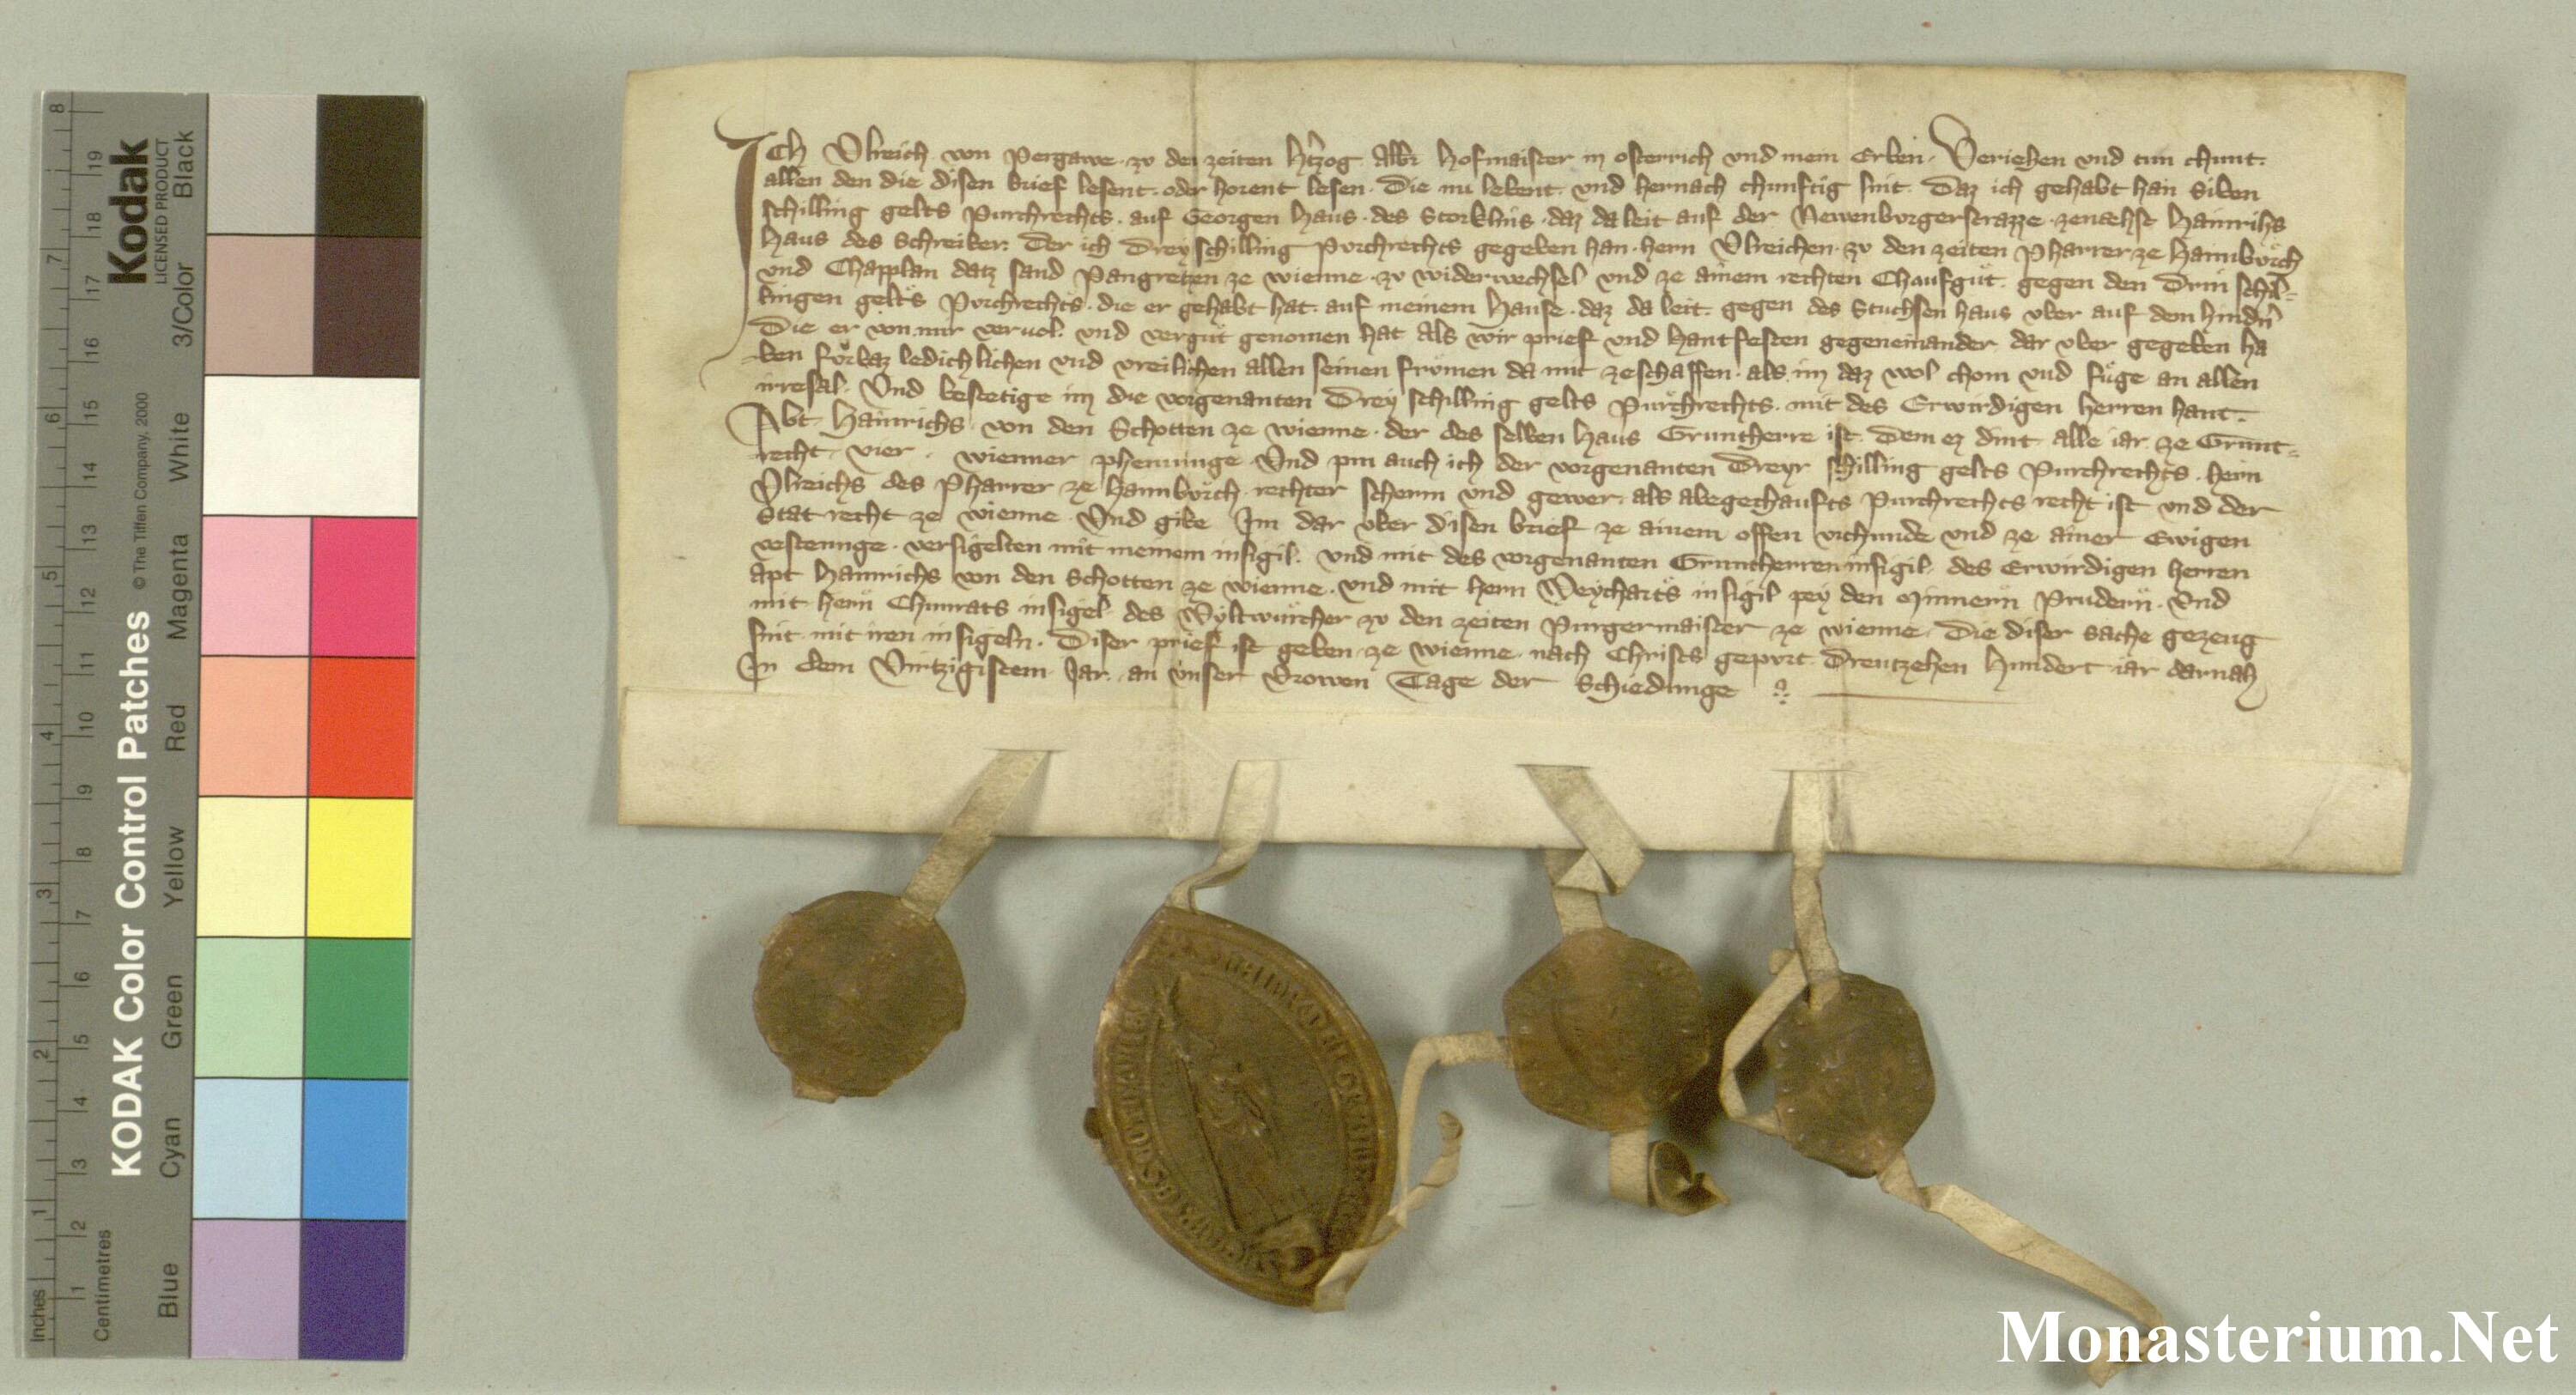 Ich Vlreich von Pergawe zv den zeiten Htzog Albr Hofmaister in osterrich vnd mein Erben. Veriehen vnd tun chunt.
allen den die disen brief lesent. oder horent lesen. Die nu lebent. vnd hernach chunftig sint. Daz ich gehabt han siben
schilling gelts Purchrechts. auf Georgen Haus. des Storkhlins. daz da leit auf der Newenburgerstrazze. zenaehst Hainrihs
Haus des Schreiber. Der ich Drey schilling Purchrechts gegeben han. hern Vlreichen. zv den zeiten Pharrer ze Hainburch
vnd Chapplan datz sand Pangretzen ze wienne. zv widerwechsel vnd ze ainem rechten Chaufgut. gegen den Drin schil=
lingen gelts Purchrechts. die er gehabt hat. auf meinem Hause. daz da leit. gegen des Stuchsen haus vber auf dem hindn
Die er von mir vervol. vnd vergut genomen hat Als wir prief vnd hantfesten gegeneinander dar vber gegeben ha
ben furbaz ledichlichen vnd vreilichen allen seinen frumen da mit ze schaffen. als im daz wol chom vnd fuge an allen
irresal. Vnd bestetige im die vorgenanten Drey schilling gelts Purchrechts. mit des Erwirdigen herren hant.
Abt Hainrichs von den Schotten ze wienne. der des selben Haus Gruntherre ist. Dem ez dint alle iar ze Grunt=
recht. vier. wienner phenninge. Vnd pin auch ich der vorgenanten Dreyr schilling gelts Purchrechts. hern
Vlreichs des Pharrer ze Hainburch. rechter scherm vnd gewer. als abegechaufts Purchrechts recht ist vnd der
Stat recht ze wienne. Vnd gibe Im dar vber disen brief ze ainem offen vrchunde vnd ze ainer Ewigen
vestenunge. versigelten mit meinem insigil. vnd mit des vorgenanten Gruntherren insigil. des Erwirdigen herren
apt Hainrichs von den Schotten ze wienne. vnd mit hern Weycharts insigil pey den Minnern Prudern. Vnd
mit hern Chunrats insigel des Wyltwurcher zv den zeiten Purgermaister ze wienne. Die diser sache gezeug
sint mit iren insigeln. Diser prief ist geben ze wienne. nach Christs gepurt Dreutzehen Hundert iar darnah
In dem Virtzigistem Jar. an vnser Vrowen Tage der Schiedunge
Kodak
LICENSED PRODUCT
KODAK Color Control Patches
© The Tiffen Company, 2000
Black
3/Color
White
Magenta
Red
Yellow
Green
Cyan
Blue
Inches
Centimetres
8 7 6 5 4 3 2 1
19 18 17 16 15 14 13 12 11 10 9 8 7 6 5 4 3 2 1
Monasterium.Net